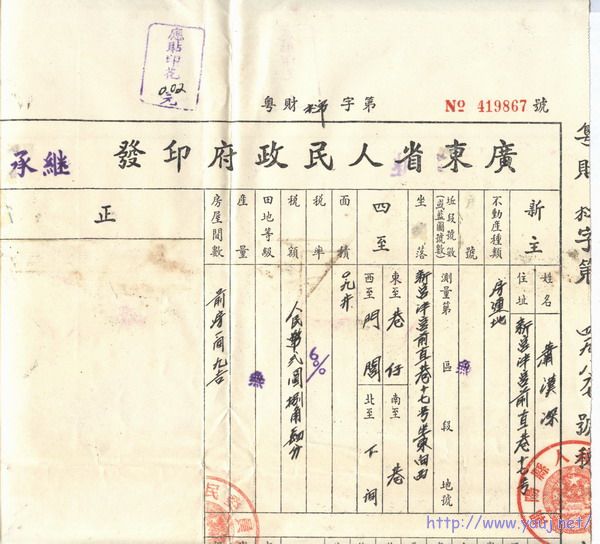 應貼印花
0.02
元
粤財 字第 № 419867 號
廣東省人民政府印發
繼承
新主
姓名
蕭漢深
住址
新昌洋邊前直巷十七号
不動產種類
房連地
號
坵段號數
(或藍圖號數)
測量第 區 段 地號
無
坐落
新昌洋邊前直巷十七号坐東向西
四至
東至 巷仔
南至 巷
西至 門閭
北至
面積
稅率
6%
稅額
人民幣弍圓捌角 分
田地等級
無
產量
房屋間數
前房
正
粤財 字第 號
http://www.youj.net/